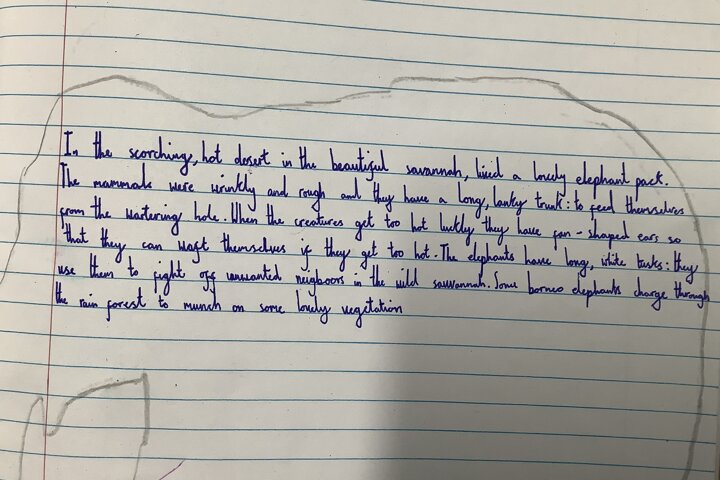 In the scorching, hot desert in the beautiful savannah, lived a lovely elephant pack.
The mammals were wrinkly and rough and they have a long, lanky trunk: to feed themselves
from the wartering hole. When the creatures get too hot luckly they have fan-shaped ears so
that they can waft themselves if they get too hot. The elephants have long, white tusks: they
use them to fight off unwanted neighbors in the wild sauvannah. Some borneo elephants charge through
the rain forest to munch on some lovely vegetation